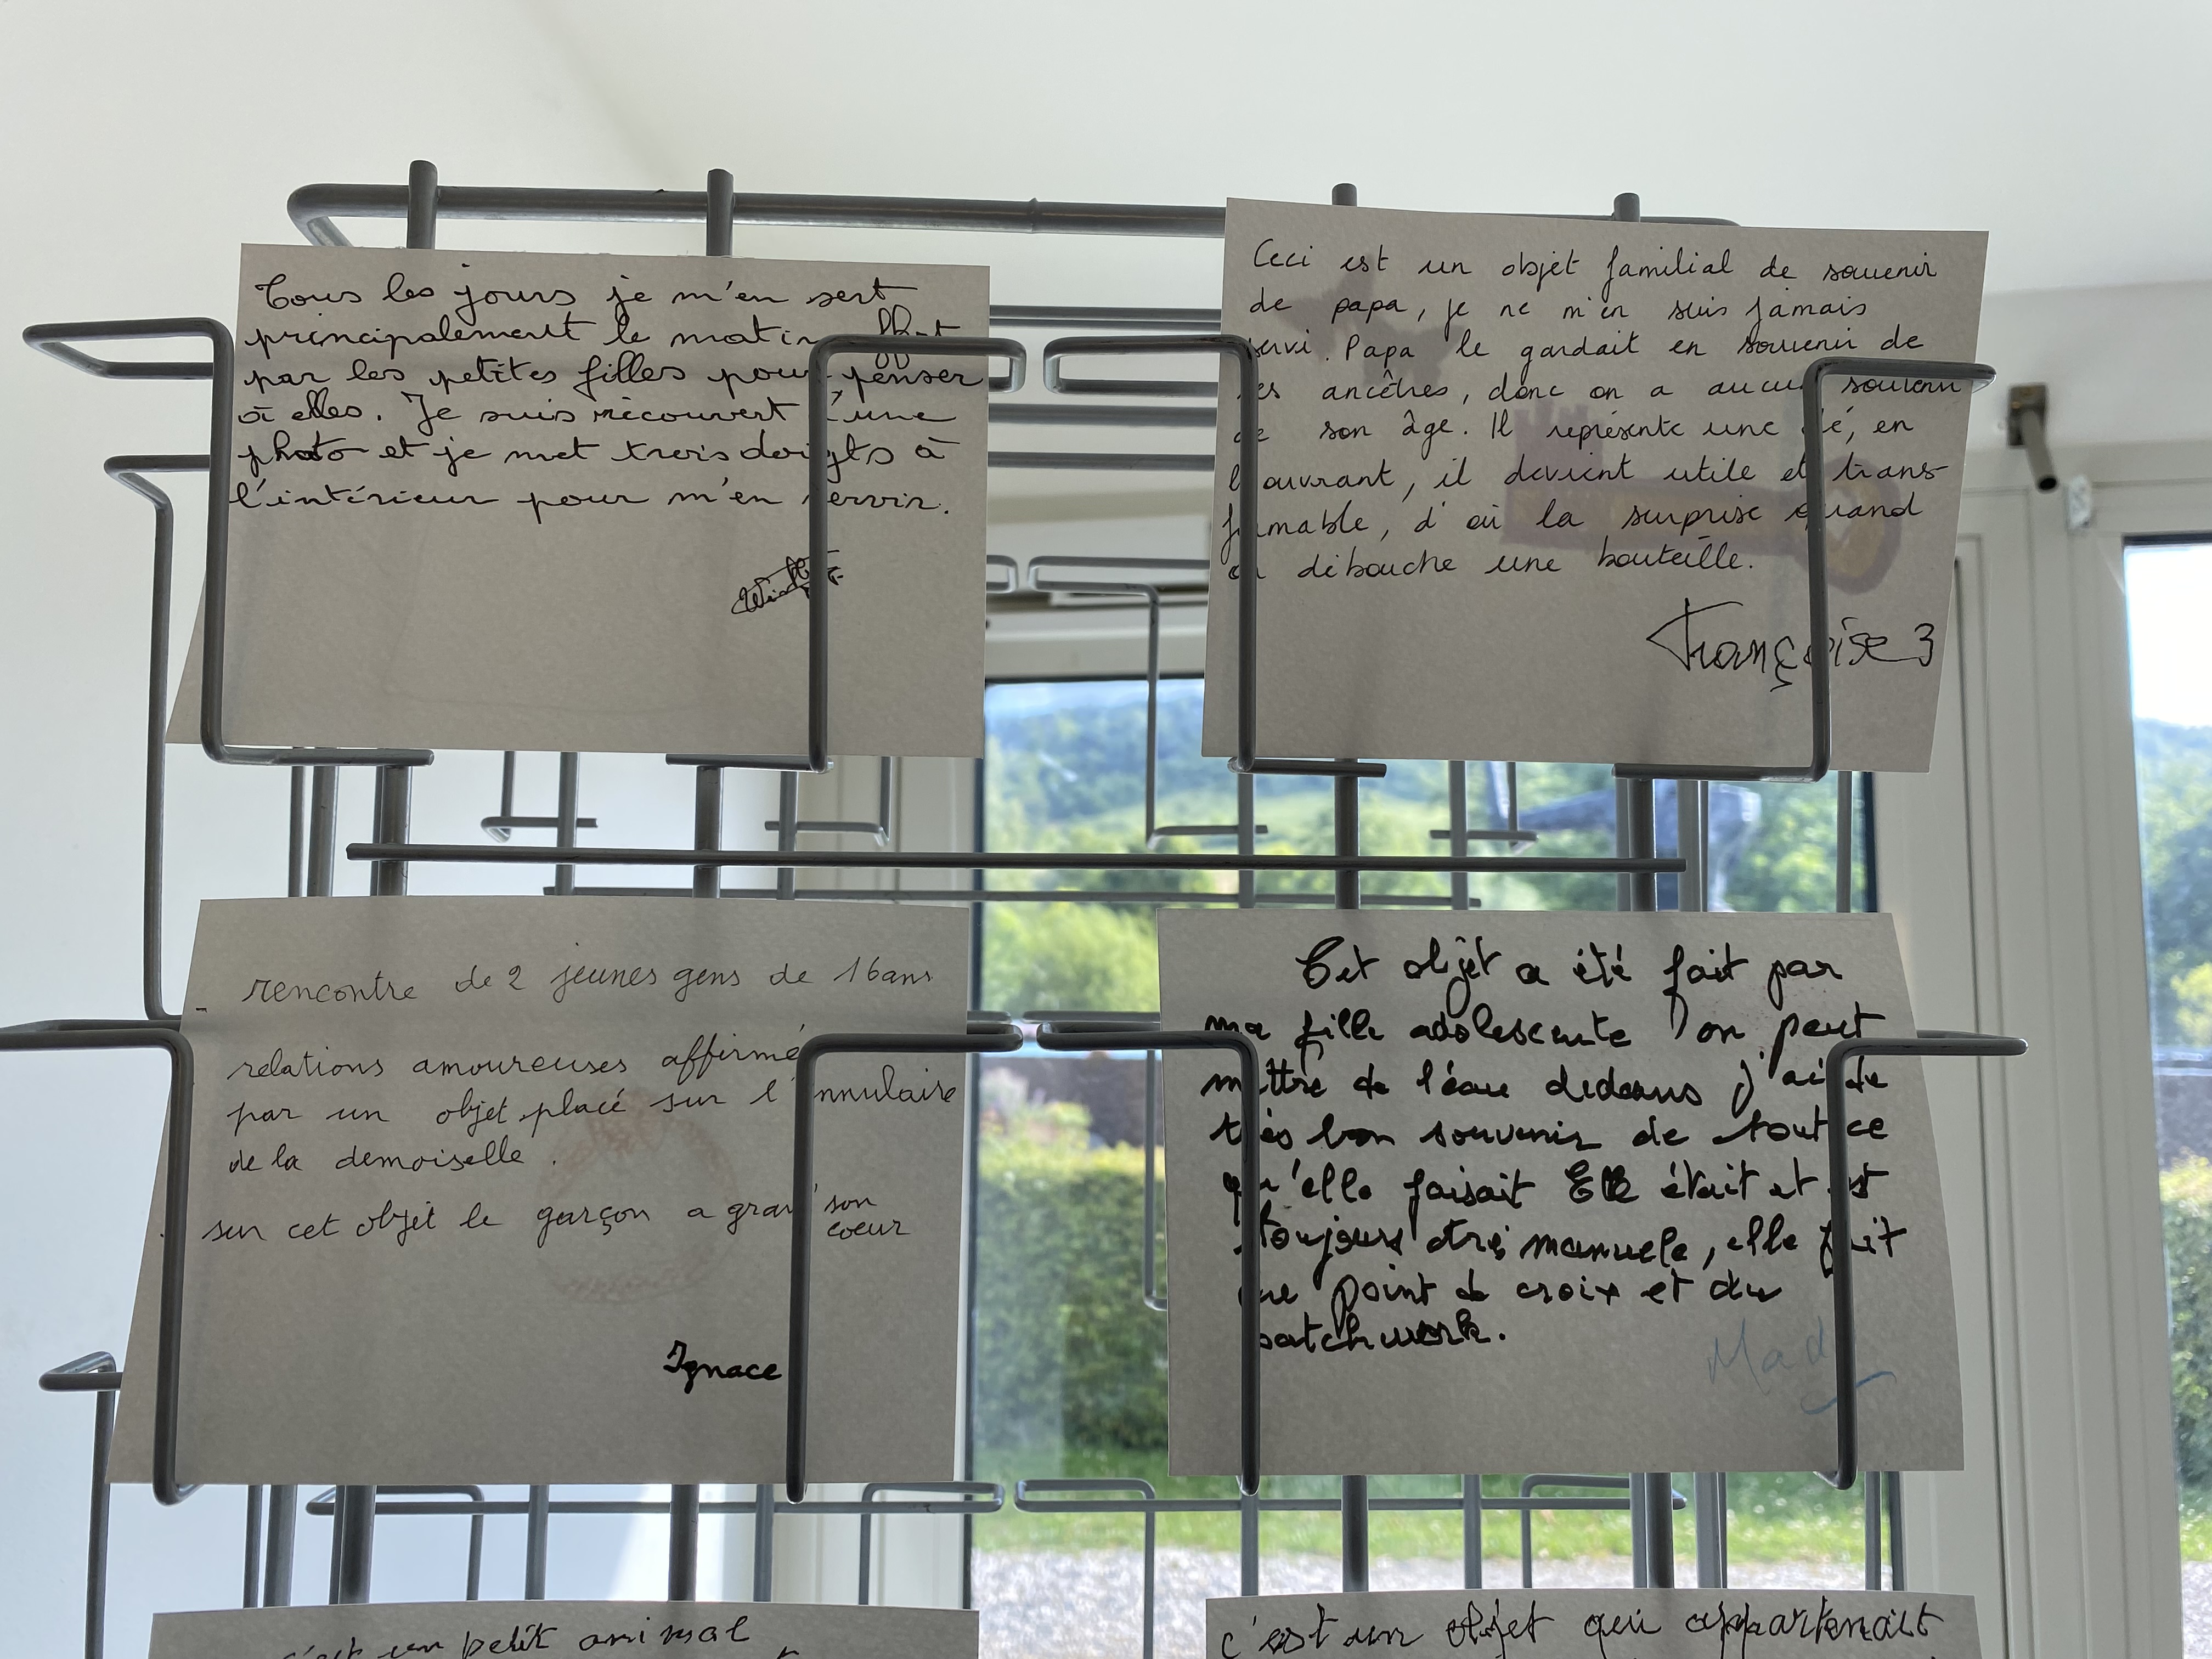 Tous les jours je m'en sert
principalement le matin
par les petites filles pour penser
à elles. Je suis récouvert d'une
photo et je met trois doigts à
l'intérieur pour m'en servir.
Ceci est un objet familial de souvenir
de papa, je ne m'en suis jamais
servi. Papa le gardait en souvenir de
ses ancêtres, donc on a aucun souvenir
de son âge. Il représente une clé, en
l'ouvrant, il devient utile et trans-
formable, d'où la surprise quand
on débouche une bouteille.
Françoise 3
rencontre de 2 jeunes gens de 16 ans
relations amoureuses affirmé
par un objet placé sur l'annulaire
de la demoiselle.
sur cet objet le garçon a gravé son
coeur
Ignace
Cet objet a été fait par
ma fille adolescente on peut
mettre de l'eau dedans j'ai de
très bon souvenir de tout ce
qu'elle faisait Elle était et est
toujours très manuele, elle fait
du point de croix et du
patchwork.
Mady
c'est un petit animal
c'est un objet qui appartenait